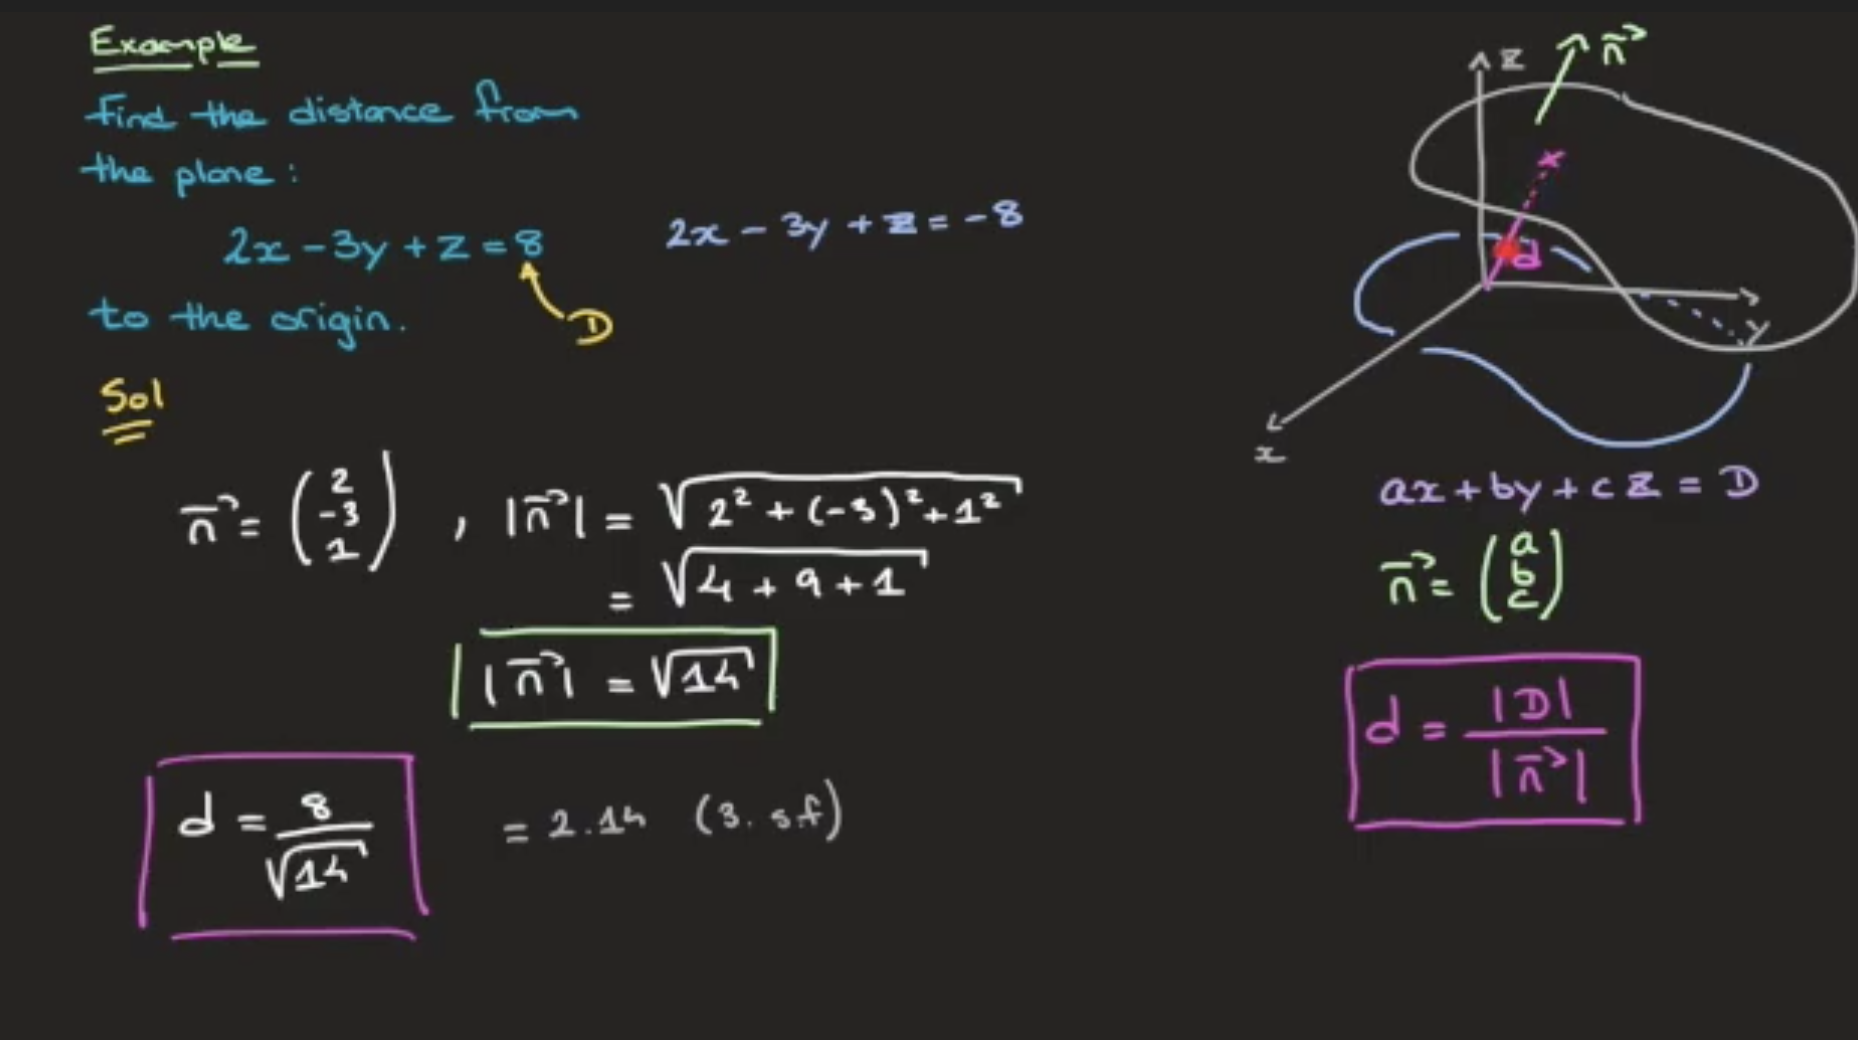 Example
Find the distance from
the plane:
2x - 3y + z = 8
2x - 3y + z = -8
D
to the origin.
Sol
n⃗ = (2 -3 1) , |n⃗| = √(2² + (-3)² + 1²)
= √(4 + 9 + 1)
|n⃗| = √14
d = 8/√14 = 2.14 (3. s.f)
z
n⃗
d
y
x
ax + by + cz = D
n⃗ = (a b c)
d = |D|/|n⃗|